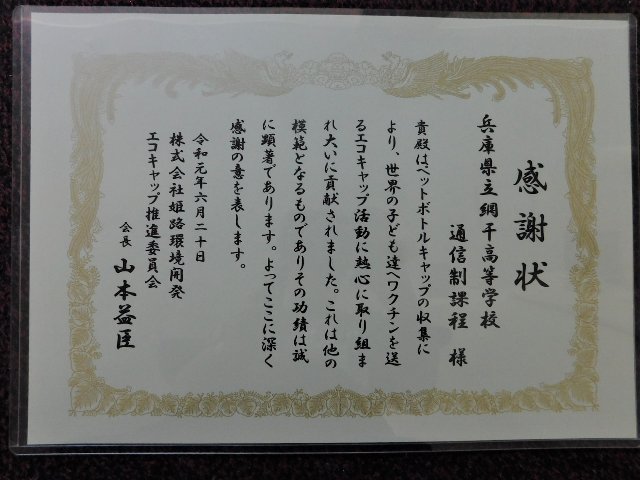 感謝状
兵庫県立網干高等学校
通信制課程 様
貴殿はペットボトルキャップの収集に
より、世界の子ども達へワクチンを送
るエコキャップ活動に熱心に取り組ま
れ大いに貢献されました。これは他の
模範となるものでありその功績は誠
に顕著であります。よってここに深く
感謝の意を表します。
令和元年六月二十日
株式会社姫路環境開発
エコキャップ推進委員会
会長 山本益臣